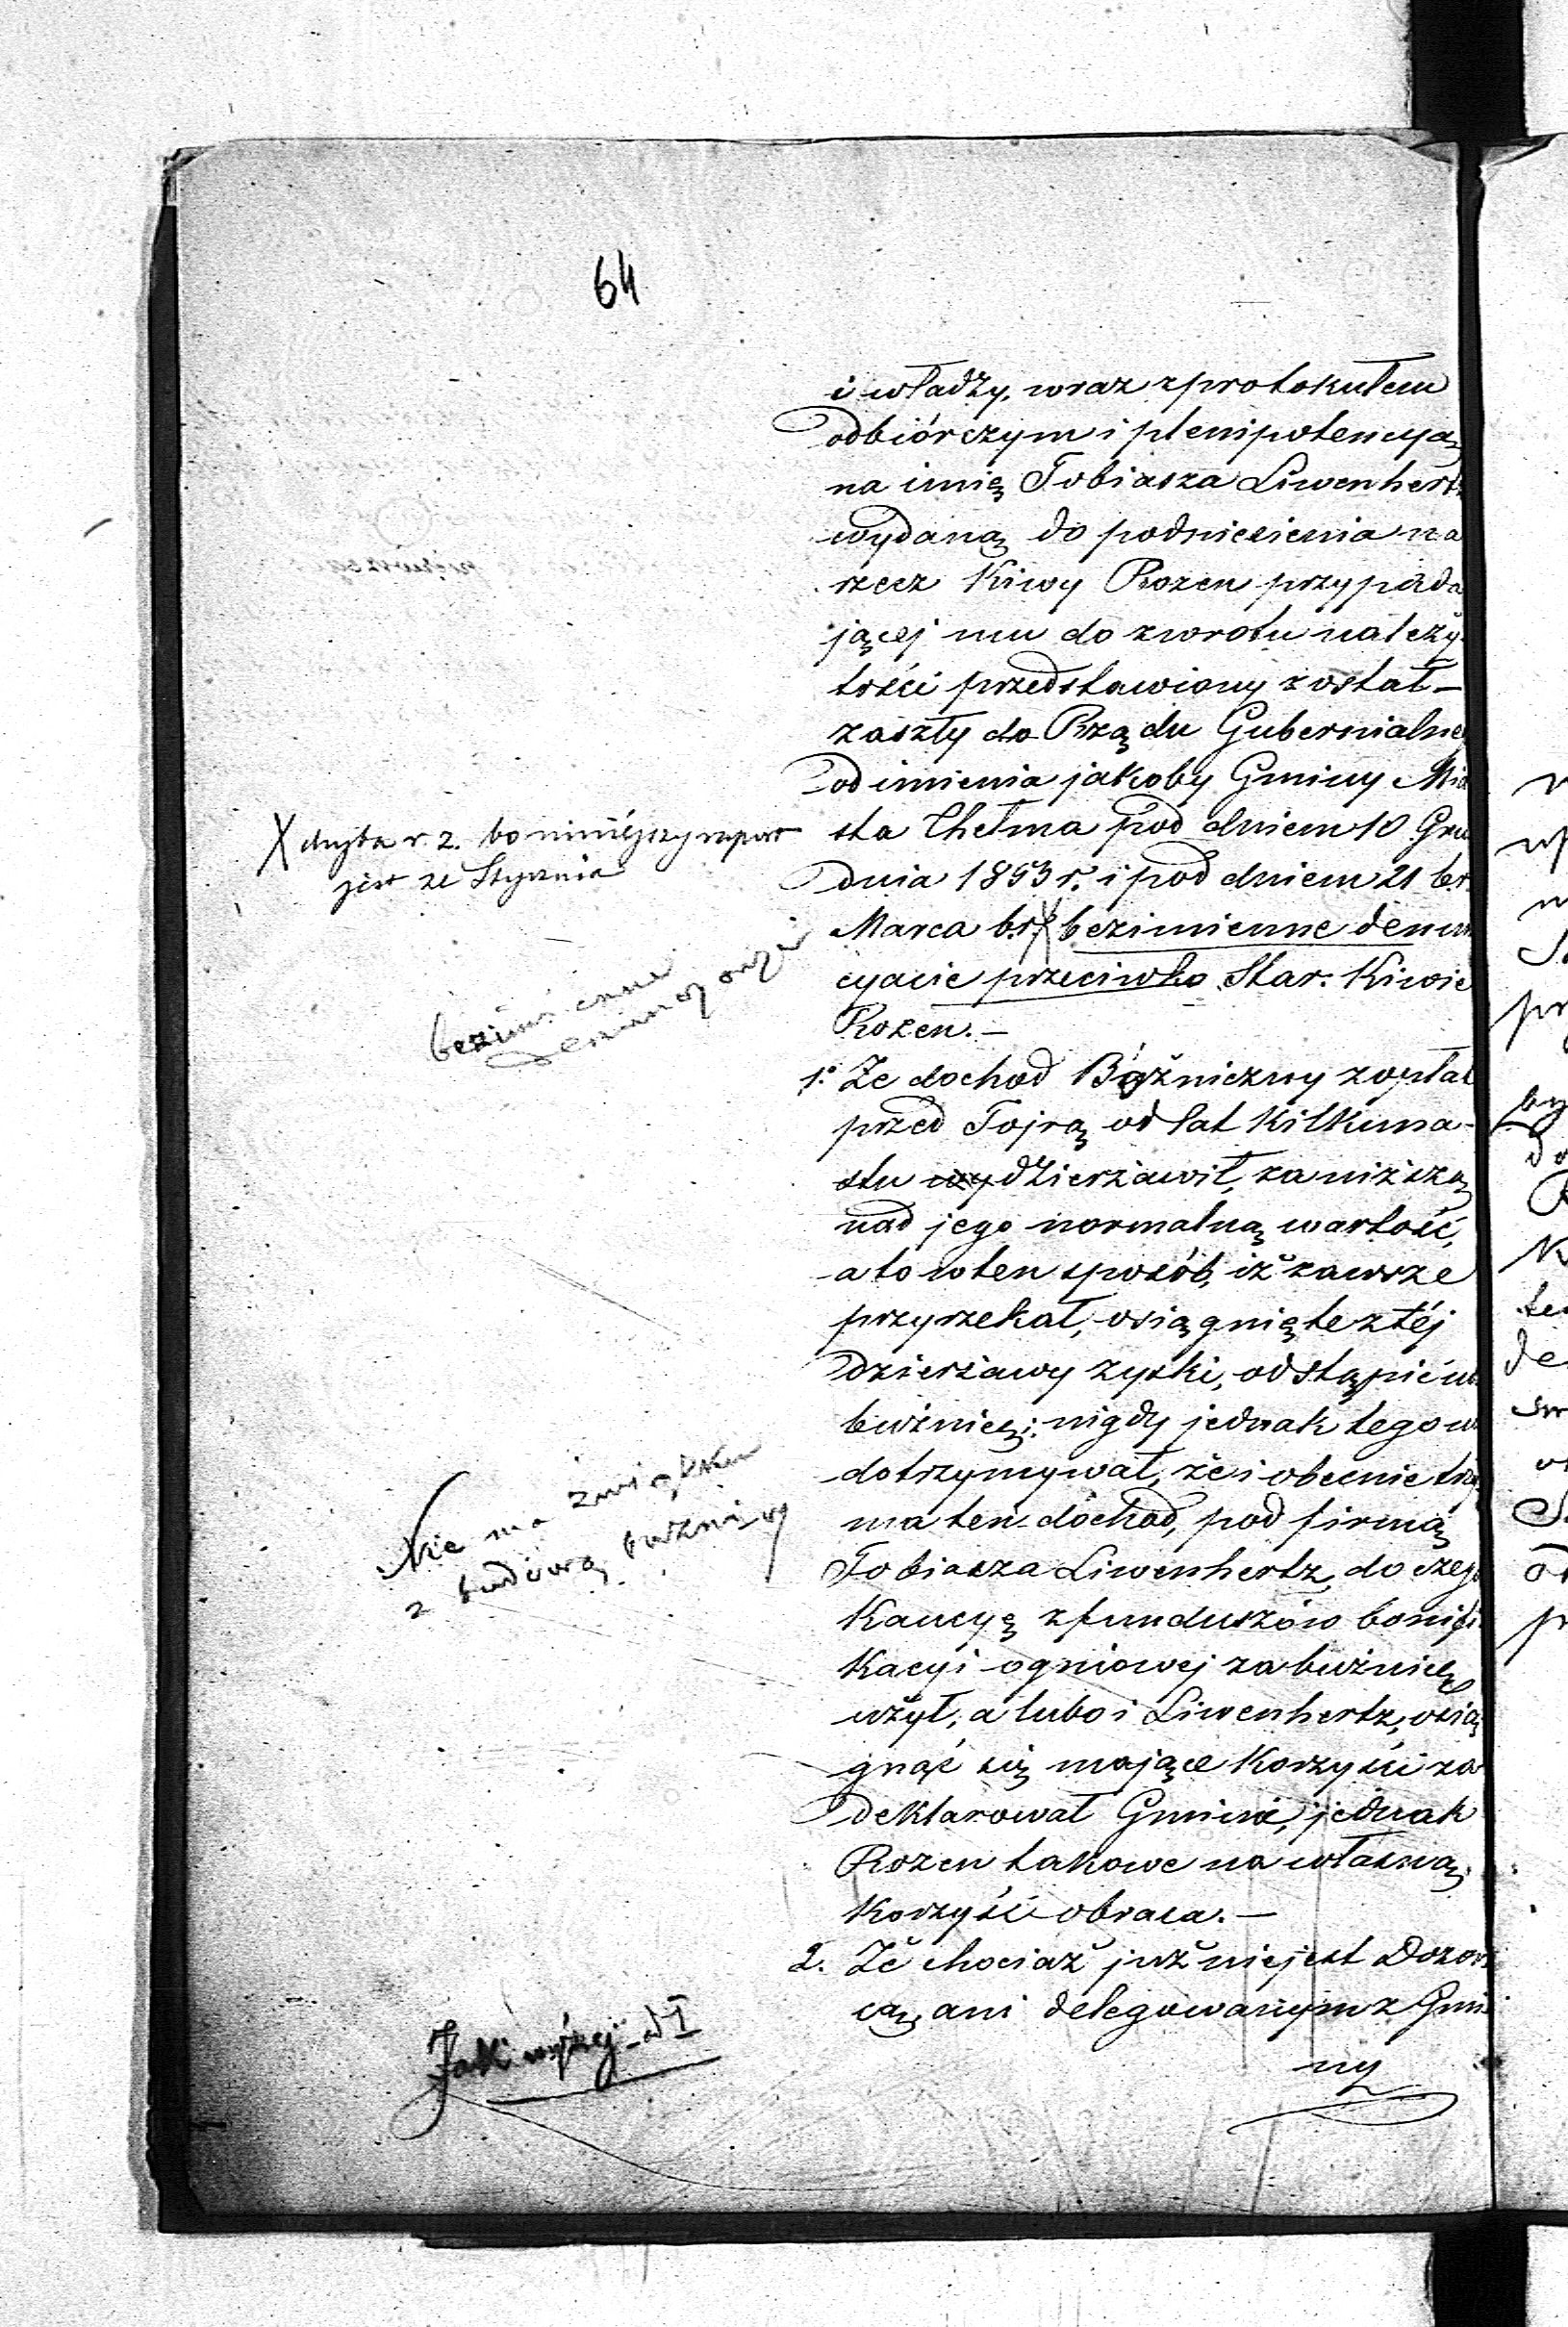 64
i władzy, wraz z protokułem
odbiórczym i plenipotencyą
na imię Tobiasza Liwenhertz
wydaną do podniesienia na
rzecz Kiwy Rozen przypada
jącej mu do zwrotu należy-
tości przedstawiony został –
zaszły do Rządu Gubernialne
od imienia jakoby Gminy Mia
sta Chełma pod dniem 10 Gru
dnia 1853 r. i pod dniem 21 b.r.
Marca b.r. X bezimienne denun
cyacie przeciwko Star: Kiwie
Rozen. –
1.o Że dochod Bóżniczny zwykłał
przed Tojrą od lat kilkuna-
stu wydzierżawił, za niższą
nad jego normalną wartość,
a to w ten sposób, iż zawsze
przyrzekał, osiągnięte z téj
dzierżawy zyski, odstąpić
bużnicy; nigdy jednak tego
dotrzymywał, że i obecnie trzy
ma ten dochod, pod firmą
Tobiasza Liwenhertz, do czego
Kaucyę z funduszów bonifi
kacyi ogniowej za bużnicę
użył, a lubo i Liwenhertz, osią
gnąć się mające korzyści za
deklarował Gminie, jednak
Rozen takowe na własną
korzyść obraca. –
2. Że chociaż już nie jest Dozor
cą, ani delegowanym z Gmi
ny
X chyba r. z. bo niniéjszy raport
jest ze Stycznia
bezimienne
denuncyacye
Nie ma związku
z budową bużnicy
Jak wyżej ad I